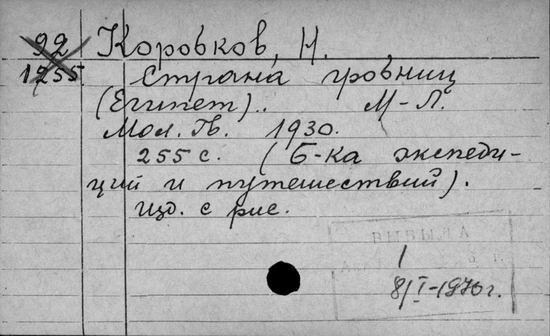 92
1255
Коровков, Н.
Страна гробниц
(Египет). М-Л.
Мол. Гв. 1930.
255 с. (Б-ка экспеди-
ций и путешествий).
Изд. с рис.
ВЫБЫЛА
8/I-1970г.